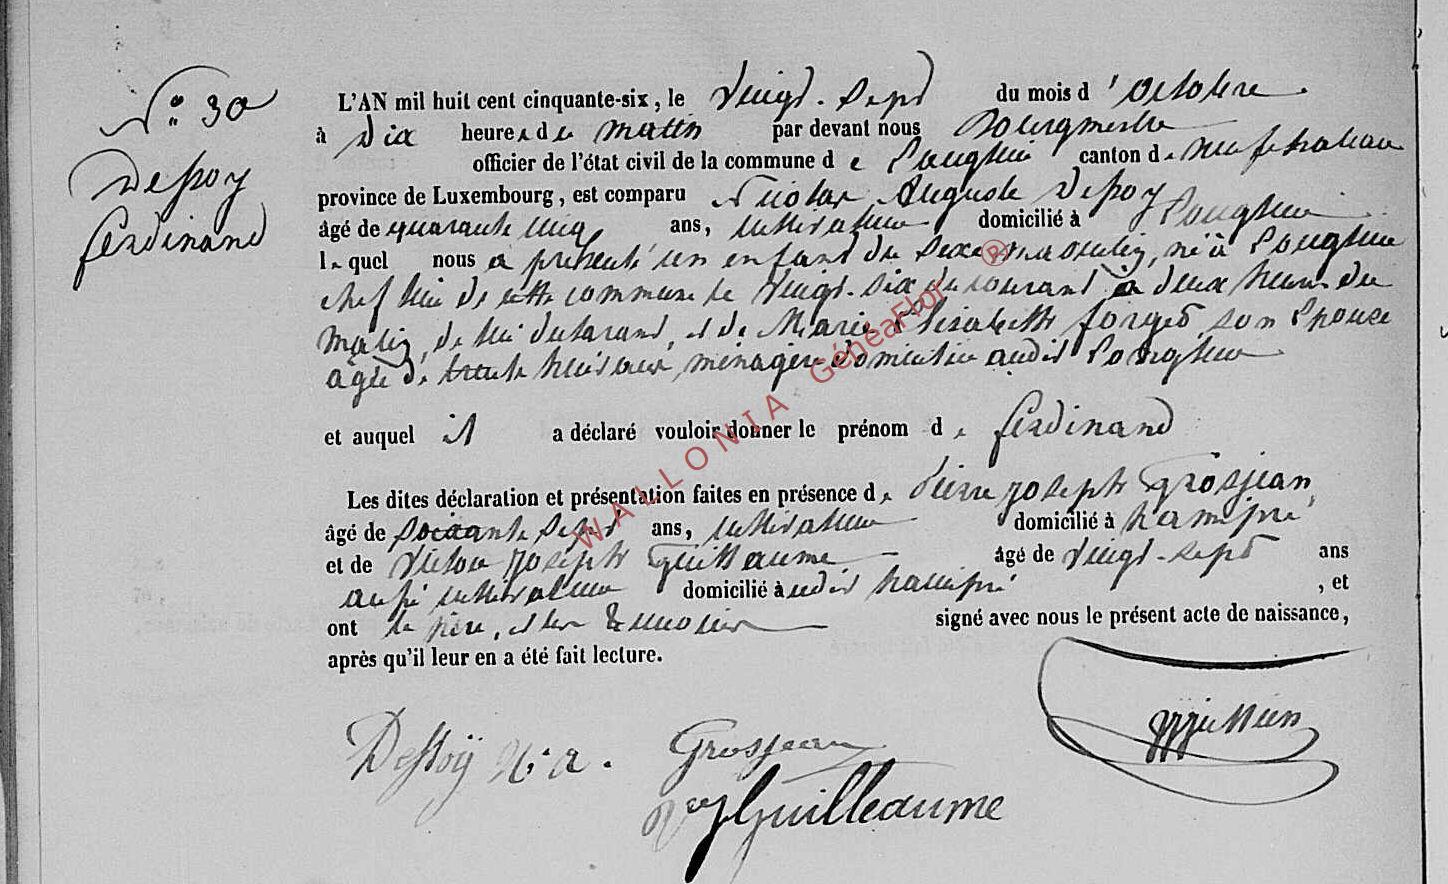 N° 30
Dessoy
Ferdinand
L'AN mil huit cent cinquante-six, le Vingt-Sept du mois d'Octobre
à Dix heures du matin par devant nous Bourgmestre
officier de l'état civil de la commune de Longlier canton de neufchateau
province de Luxembourg, est comparu Nicolas Auguste Dessoy
âgé de quarante cinq ans, cultivateur domicilié à Longlier
lequel nous a présenté un enfant du Sexe masculin, né à Longlier
chef lieu de cette commune le Vingt-six du courant à deux heures du
matin, de lui déclarant, et de Marie Elisabeth forget, son Epouse
âgée de trente ans, ménagère domiciliée audit Longlier
et auquel il a déclaré vouloir donner le prénom de ferdinand
Les dites déclaration et présentation faites en présence de Pierre joseph Grosjean,
âgé de Soixante Sept ans, cultivateur domicilié à hamipré
et de Victor joseph Guillaume âgé de vingt-sept ans
aussi cultivateur domicilié audit hamipré, et
ont le père, et les témoins signé avec nous le présent acte de naissance,
après qu'il leur en a été fait lecture.
Dessoÿ N. a.
Grosjean
Guilleaume
WALLONIA GénéaFlor ®